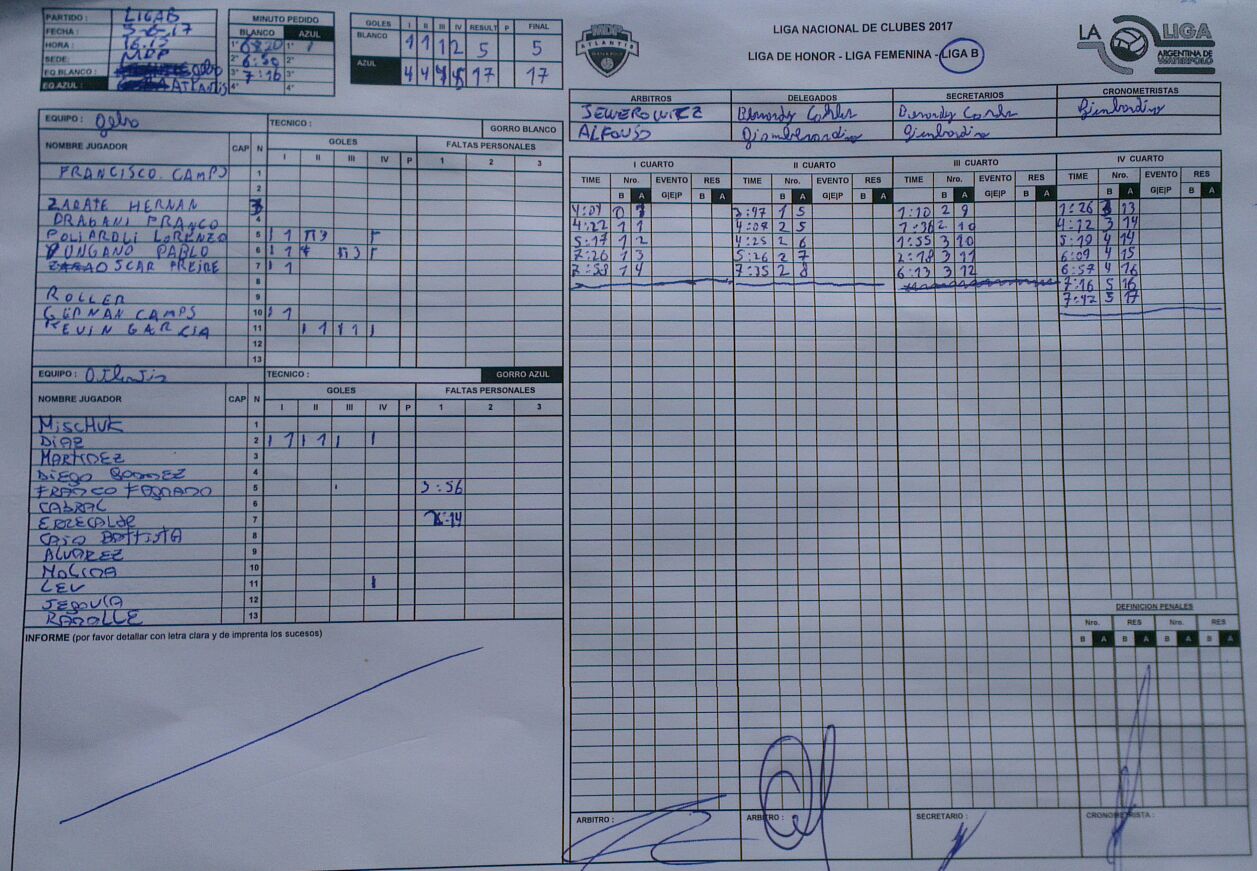 PARTIDO : LIGA B
FECHA : 5-6-17
HORA : 16.15
SEDE: MDP
EQ.BLANCO : Gebo
EQ.AZUL : ATLANTIS
MINUTO PEDIDO
BLANCO AZUL
1° 1°
2° 6:50 2°
3° 7:16 3°
4° 4°
GOLES I II III IV RESULT P FINAL
BLANCO 1 1 1 2 5 5
AZUL 4 4 4 5 17 17
MDP
ATLANTIS
LIGA NACIONAL DE CLUBES 2017
LIGA DE HONOR - LIGA FEMENINA - LIGA B
LA LIGA
ARGENTINA DE
WATERPOLO
ARBITROS DELEGADOS SECRETARIOS CRONOMETRISTAS
ALFONSO
EQUIPO : TECNICO : GORRO BLANCO
NOMBRE JUGADOR CAP N GOLES FALTAS PERSONALES
I II III IV P 1 2 3
FRANCISCO CAMPS 1
2
ZARATE HERNAN 3
DRAGANI FRANCO 4
POLIAROLI LORENZO 5
PABLO 6
OSCAR FREIRE 7
8
ROLLER 9
GERMAN CAMPS 10
KEVIN GARCIA 11
12
13
EQUIPO : Atlantis TECNICO : GORRO AZUL
NOMBRE JUGADOR CAP N GOLES FALTAS PERSONALES
I II III IV P 1 2 3
MISCHUK 1
DIAZ 2
MARTINEZ 3
DIEGO 4
FRANCO 5 3:56
CABRAL 6
ERRECALDE 7
CASO BATTISTA 8
ALVAREZ 9
MOLINA 10
LEV 11
SEGOVIA 12
13
INFORME (por favor detallar con letra clara y de imprenta los sucesos)
I CUARTO II CUARTO III CUARTO IV CUARTO
TIME Nro. EVENTO RES TIME Nro. EVENTO RES TIME Nro. EVENTO RES TIME Nro. EVENTO RES
B A G|E|P B A B A G|E|P B A B A G|E|P B A B A G|E|P B A
4:01 0 1 3:47 1 5 1:10 2 9 1:26 3 13
4:22 1 1 4:08 2 5 1:36 2 10 4:12 3 14
5:17 1 2 4:25 2 6 1:55 3 10 5:19 4 14
7:26 1 3 5:26 2 7 2:18 3 11 6:09 4 15
7:58 1 4 7:35 2 8 6:13 3 12 6:57 4 16
7:16 5 16
7:42 5 17
DEFINICION PENALES
Nro. RES Nro. RES
B A B A B A B A
ARBITRO : ARBITRO : SECRETARIO : CRONOMETRISTA :